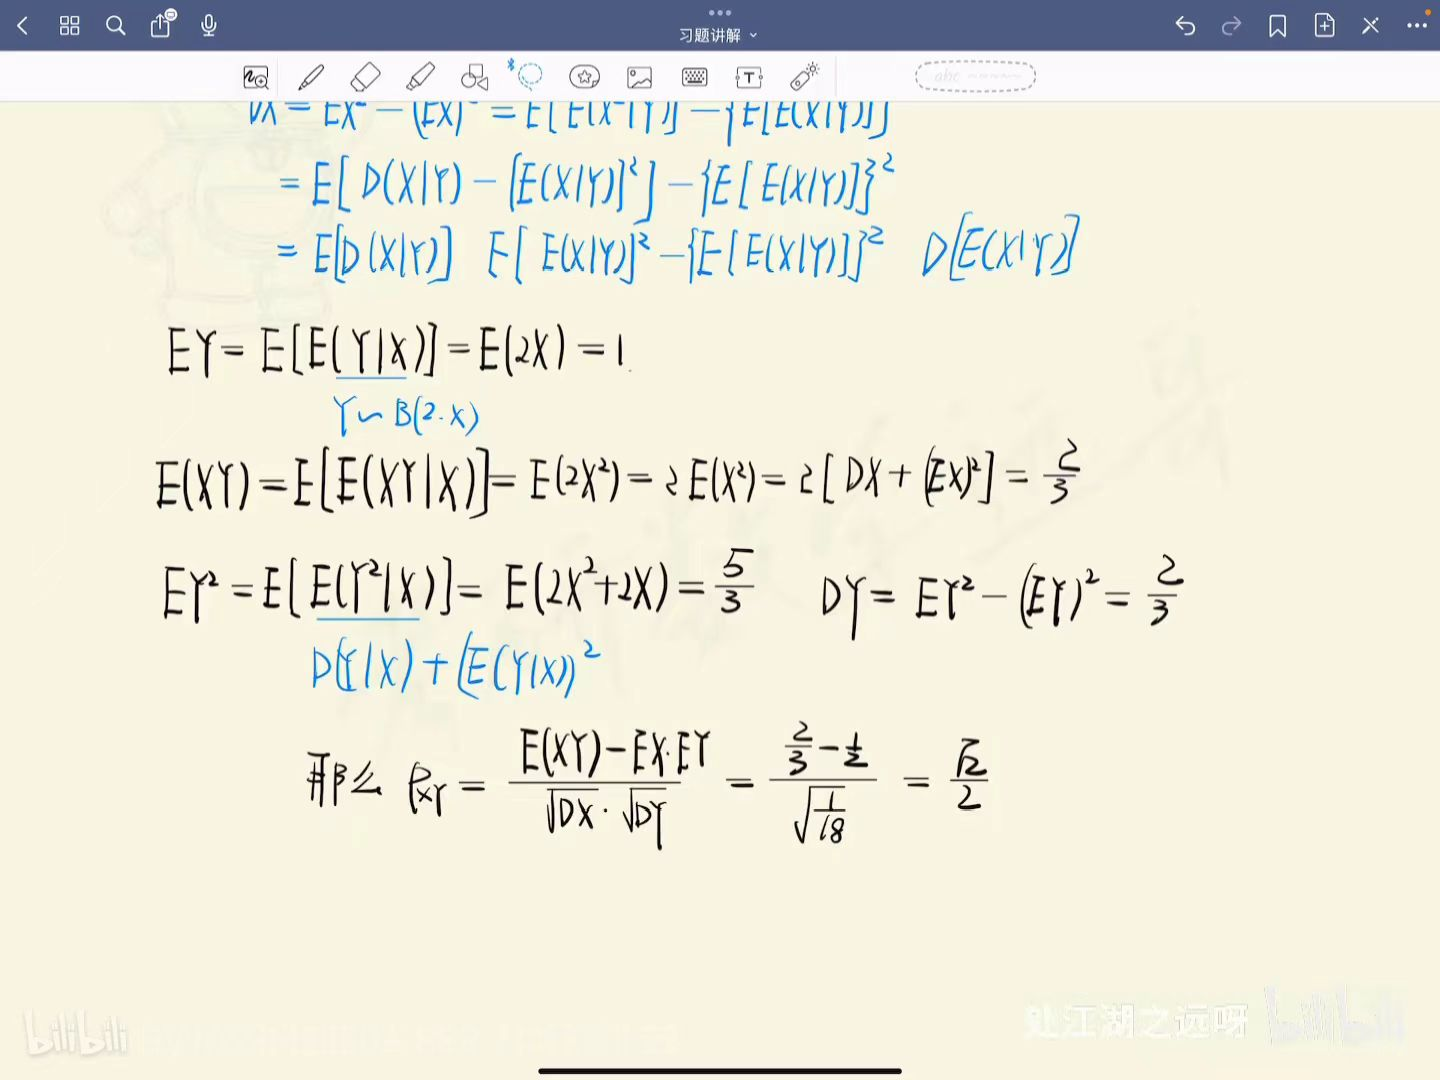 习题讲解
abc
DX = EX² - (EX)² = E[E(X²|Y)] - {E[E(X|Y)]}
= E[D(X|Y) - [E(X|Y)]²] - {E[E(X|Y)]}²
= E[D(X|Y)] E[E(X|Y)]² - {E[E(X|Y)]}² D[E(X|Y)]
EY = E[E(Y|X)] = E(2X) = 1.
Y~B(2.X)
E(XY) = E[E(XY|X)] = E(2X²) = 2E(X²) = 2[DX + (EX)²] = 2/3
EY² = E[E(Y²|X)] = E(2X²+2X) = 5/3 DY = EY² - (EY)² = 2/3
D(Y|X) + (E(Y|X))²
那么 ρXY = (E(XY) - EX·EY)/(√DX · √DY) = (2/3 - 1/2)/√(1/18) = √2/2
处江湖之远呀 bilibili
bilibili